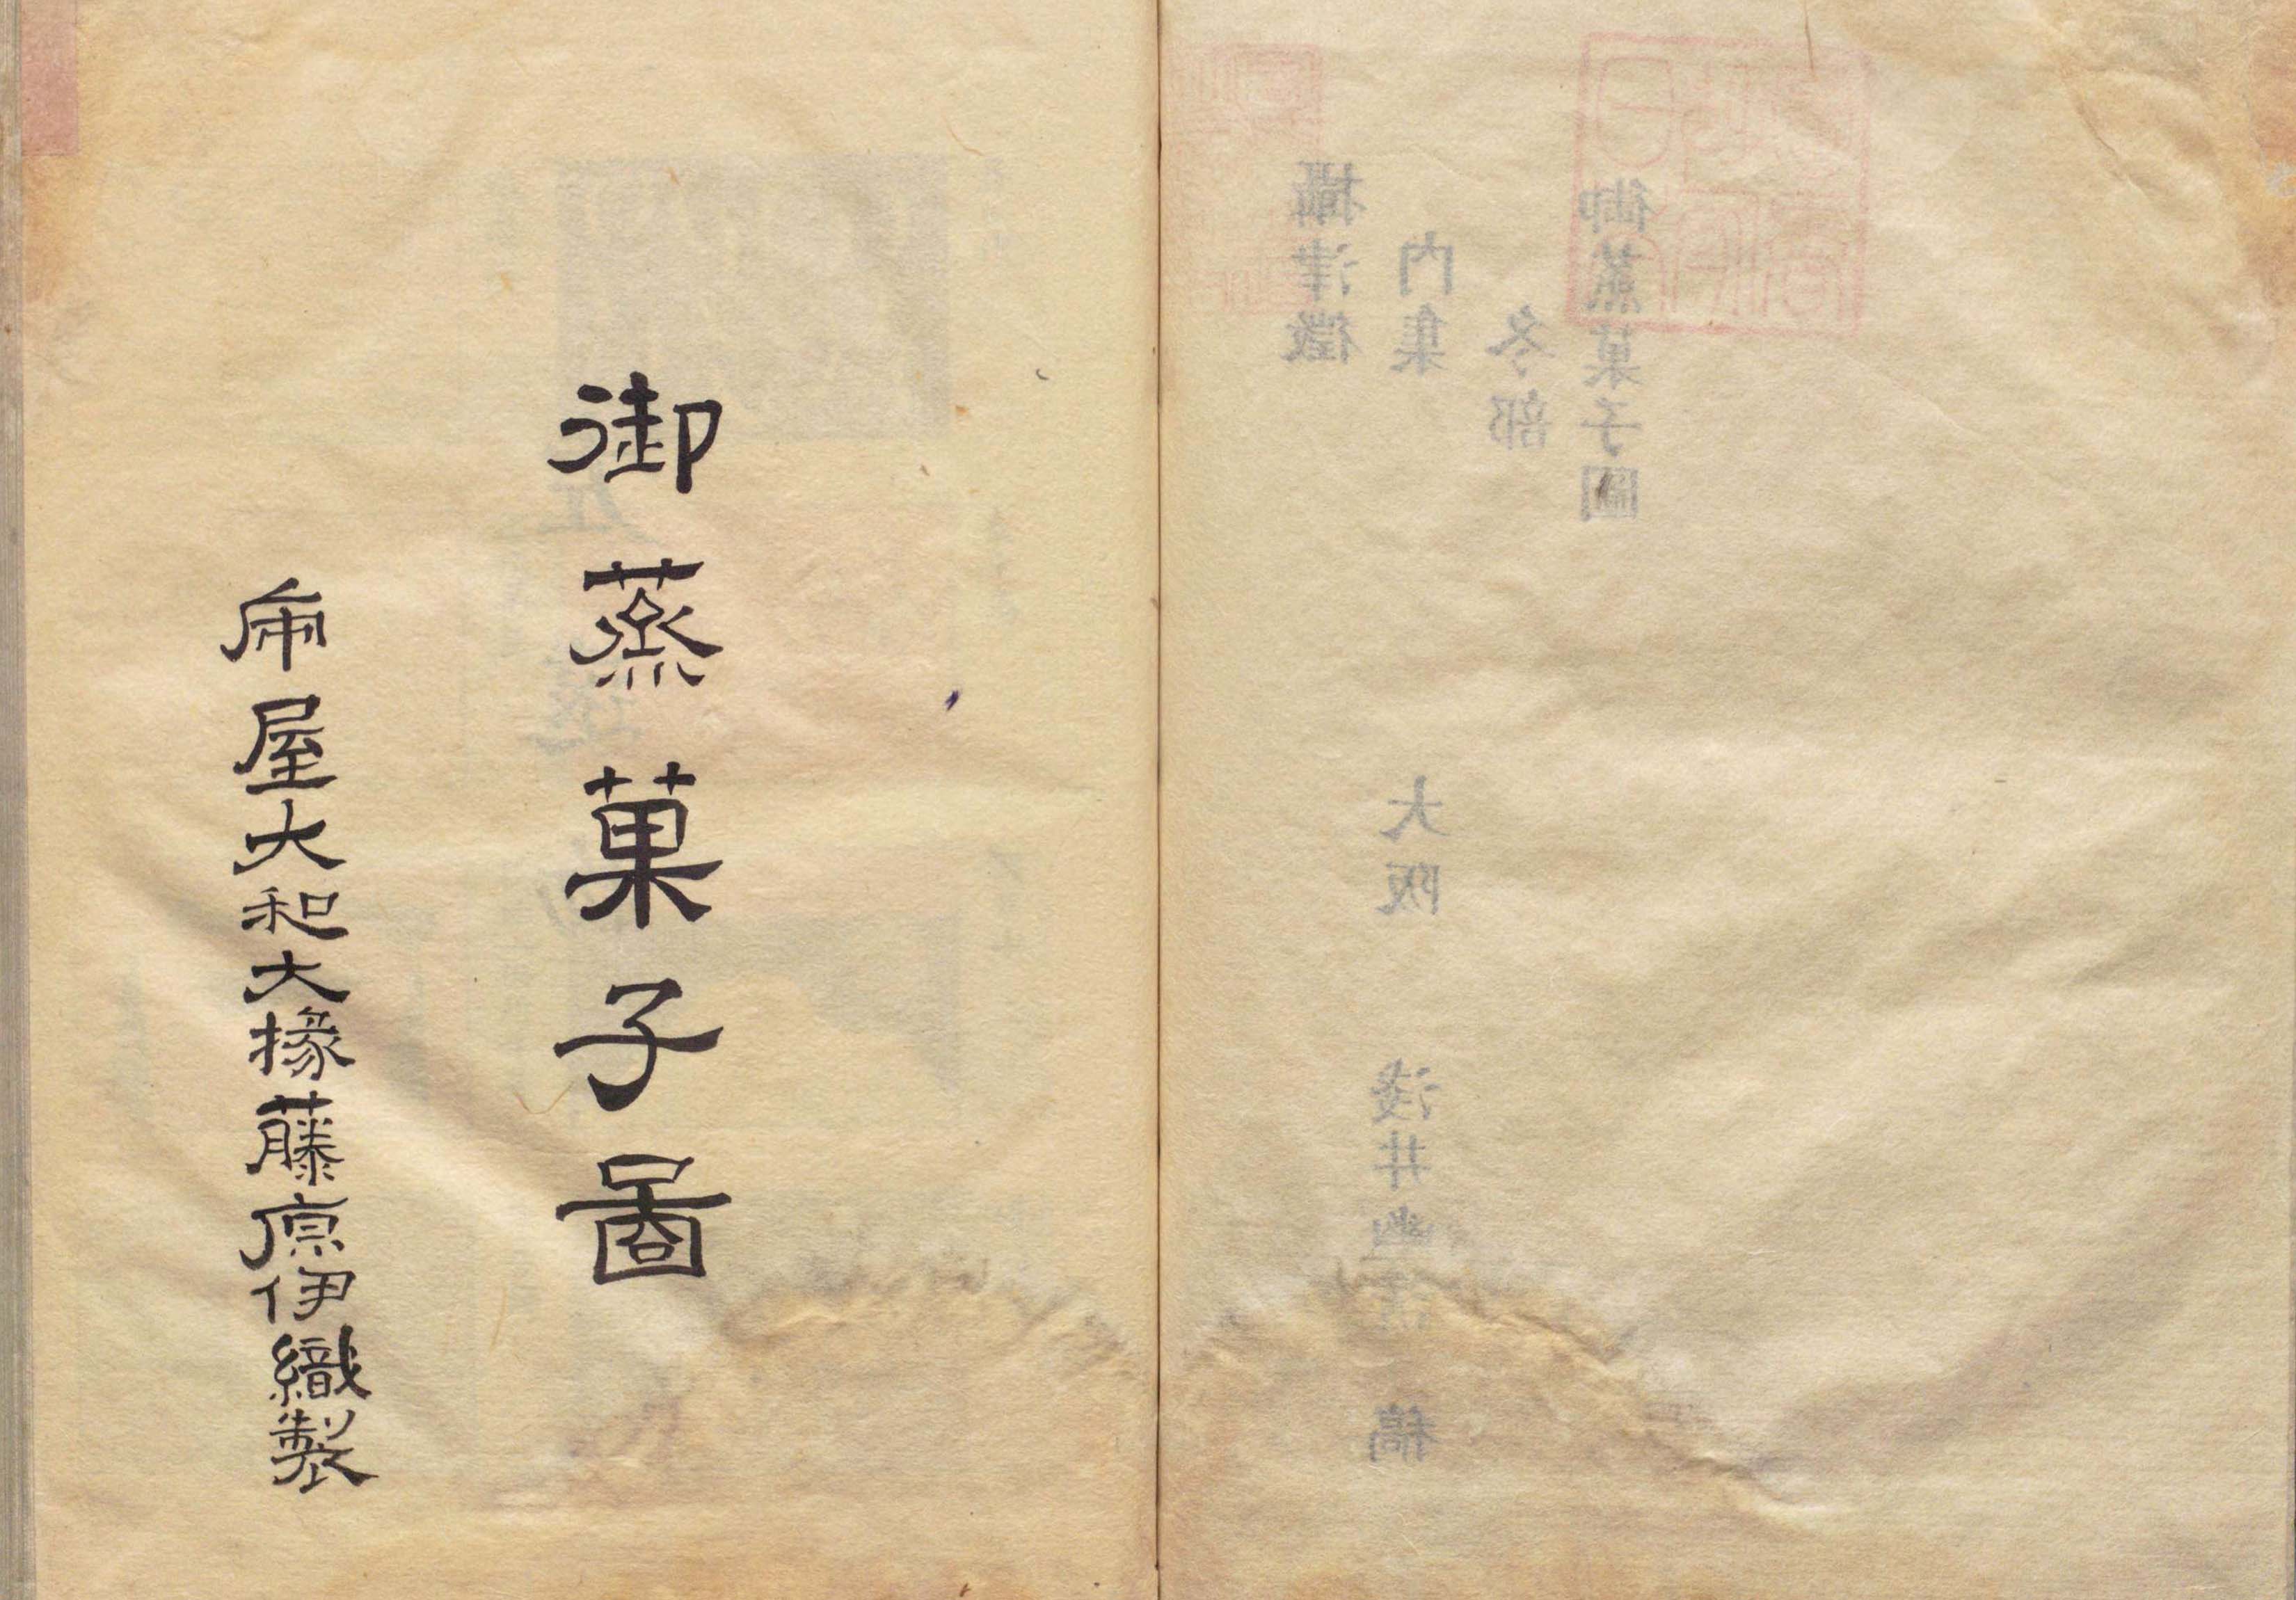 攝津徴
内集
冬部
御蒸菓子圖
大阪 淺井幽清 稿
御蒸菓子圖
乕屋大和大掾藤原伊織製